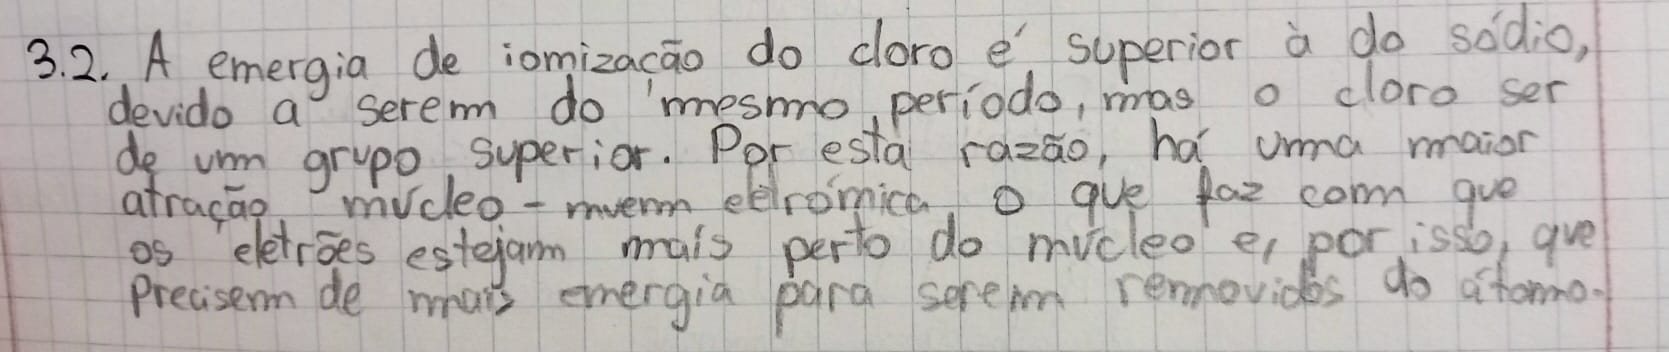 3.2. A emergia de iomização do cloro é superior à do sódio,
devido a serem do mesmo período, mas o cloro ser
de um grupo superior. Por esta razão, há uma maior
atração múcleo-muvem eletrómica o que faz com que
os eletrões estejam mais perto do múcleo e, por isso, que
precisem de mais emergia para serem removidos do átomo.